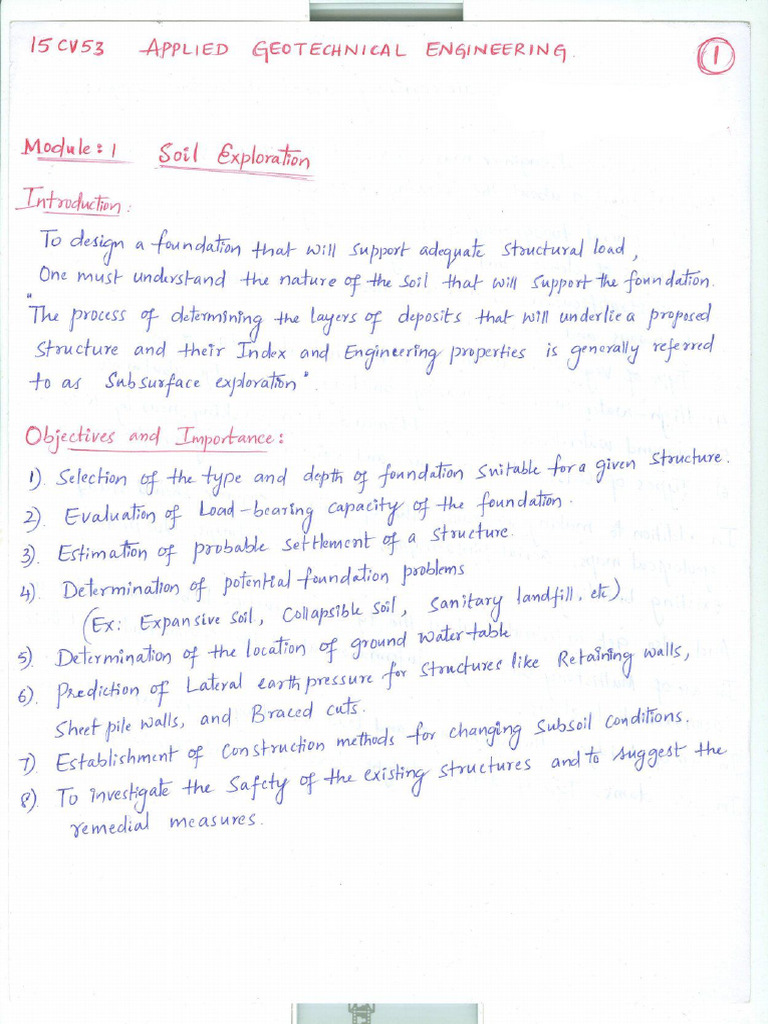 15CV53 APPLIED GEOTECHNICAL ENGINEERING.
1
Module: 1 Soil Exploration
Introduction:
To design a foundation that will support adequate structural load,
One must understand the nature of the soil that will support the foundation.
"The process of determining the layers of deposits that will underlie a proposed
structure and their Index and Engineering properties is generally referred
to as Subsurface exploration".
Objectives and Importance:
1). Selection of the type and depth of foundation suitable for a given structure.
2). Evaluation of Load-bearing capacity of the foundation.
3). Estimation of probable settlement of a structure.
4). Determination of potential foundation problems
(Ex: Expansive soil, Collapsible soil, sanitary landfill, etc)
5). Determination of the location of ground water table
6). Prediction of Lateral earth pressure for structures like Retaining walls,
Sheet pile walls, and Braced cuts.
7). Establishment of construction methods for changing subsoil conditions.
8). To investigate the Safety of the existing structures and to suggest the
remedial measures.